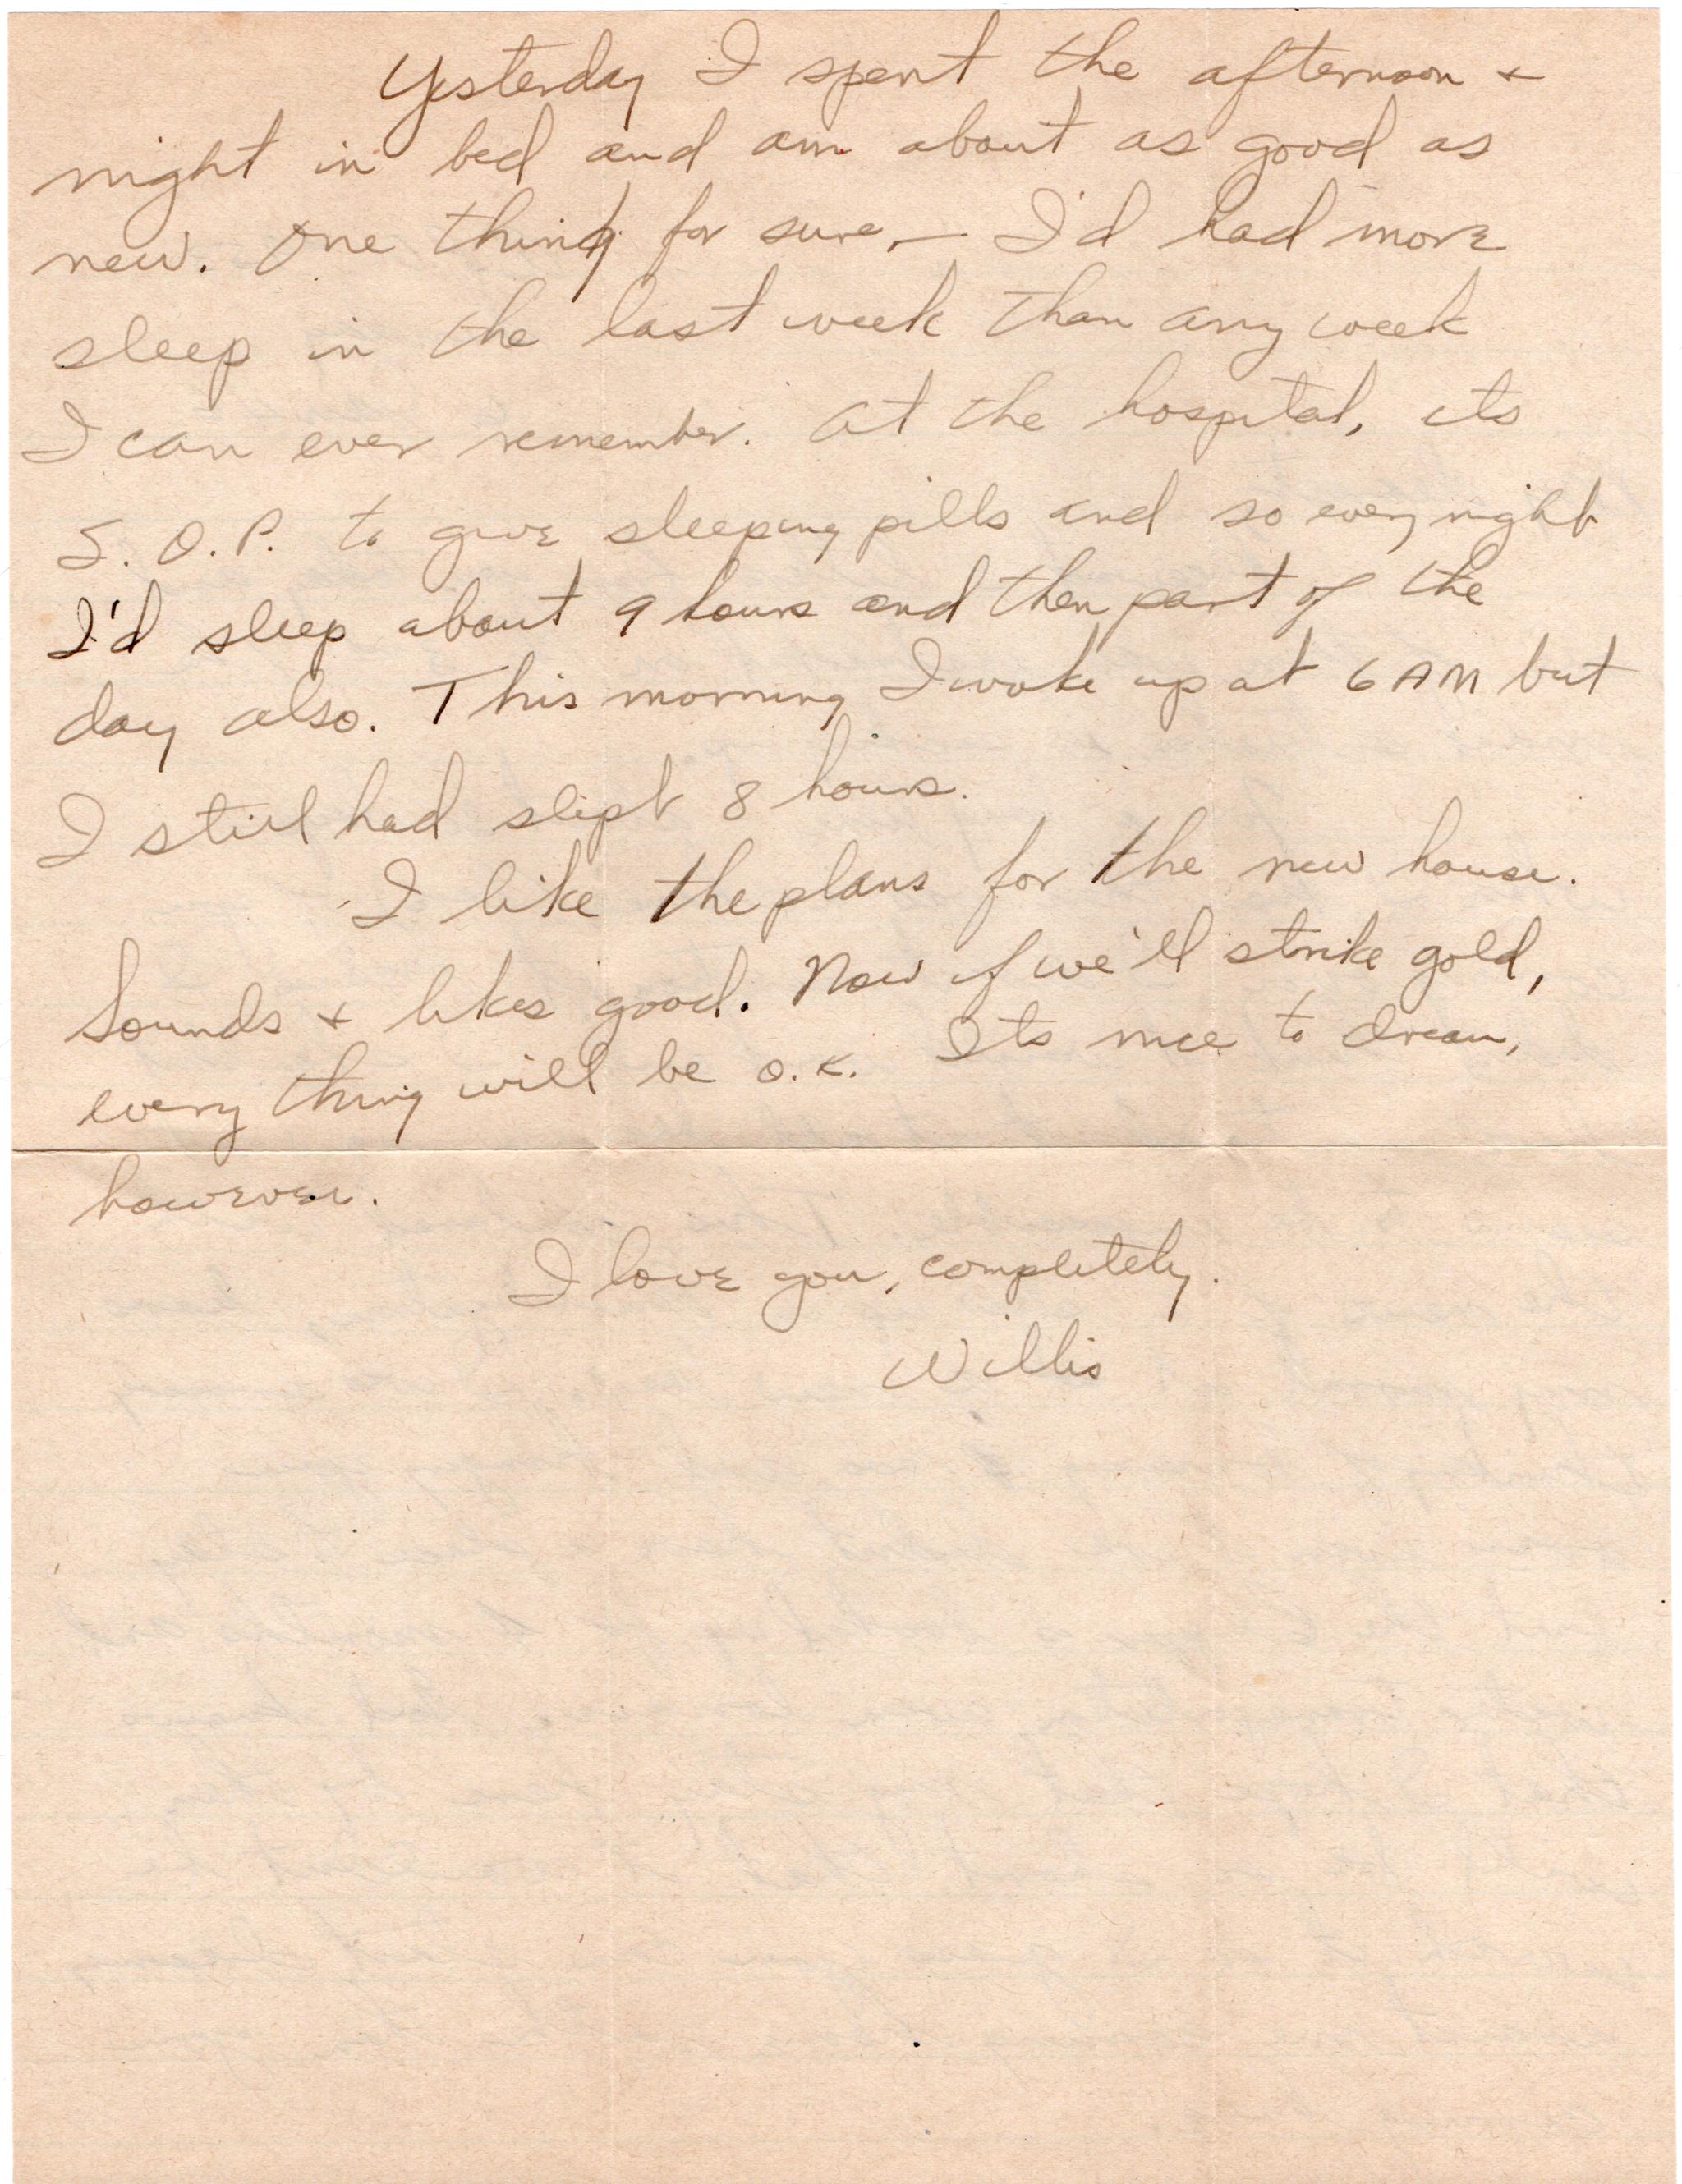 Yesterday I spent the afternoon +
night in bed and am about as good as
new. One thing for sure, — I'd had more
sleep in the last week than any week
I can ever remember. At the hospital, its
S.O.P. to give sleeping pills and so every night
I'd sleep about 9 hours and then part of the
day also. This morning I woke up at 6 AM but
I still had slept 8 hours.
I like the plans for the new house.
Sounds + likes good. Now if we'll strike gold,
every thing will be o.k. Its nice to dream,
however.
I love you, completely.
Willis